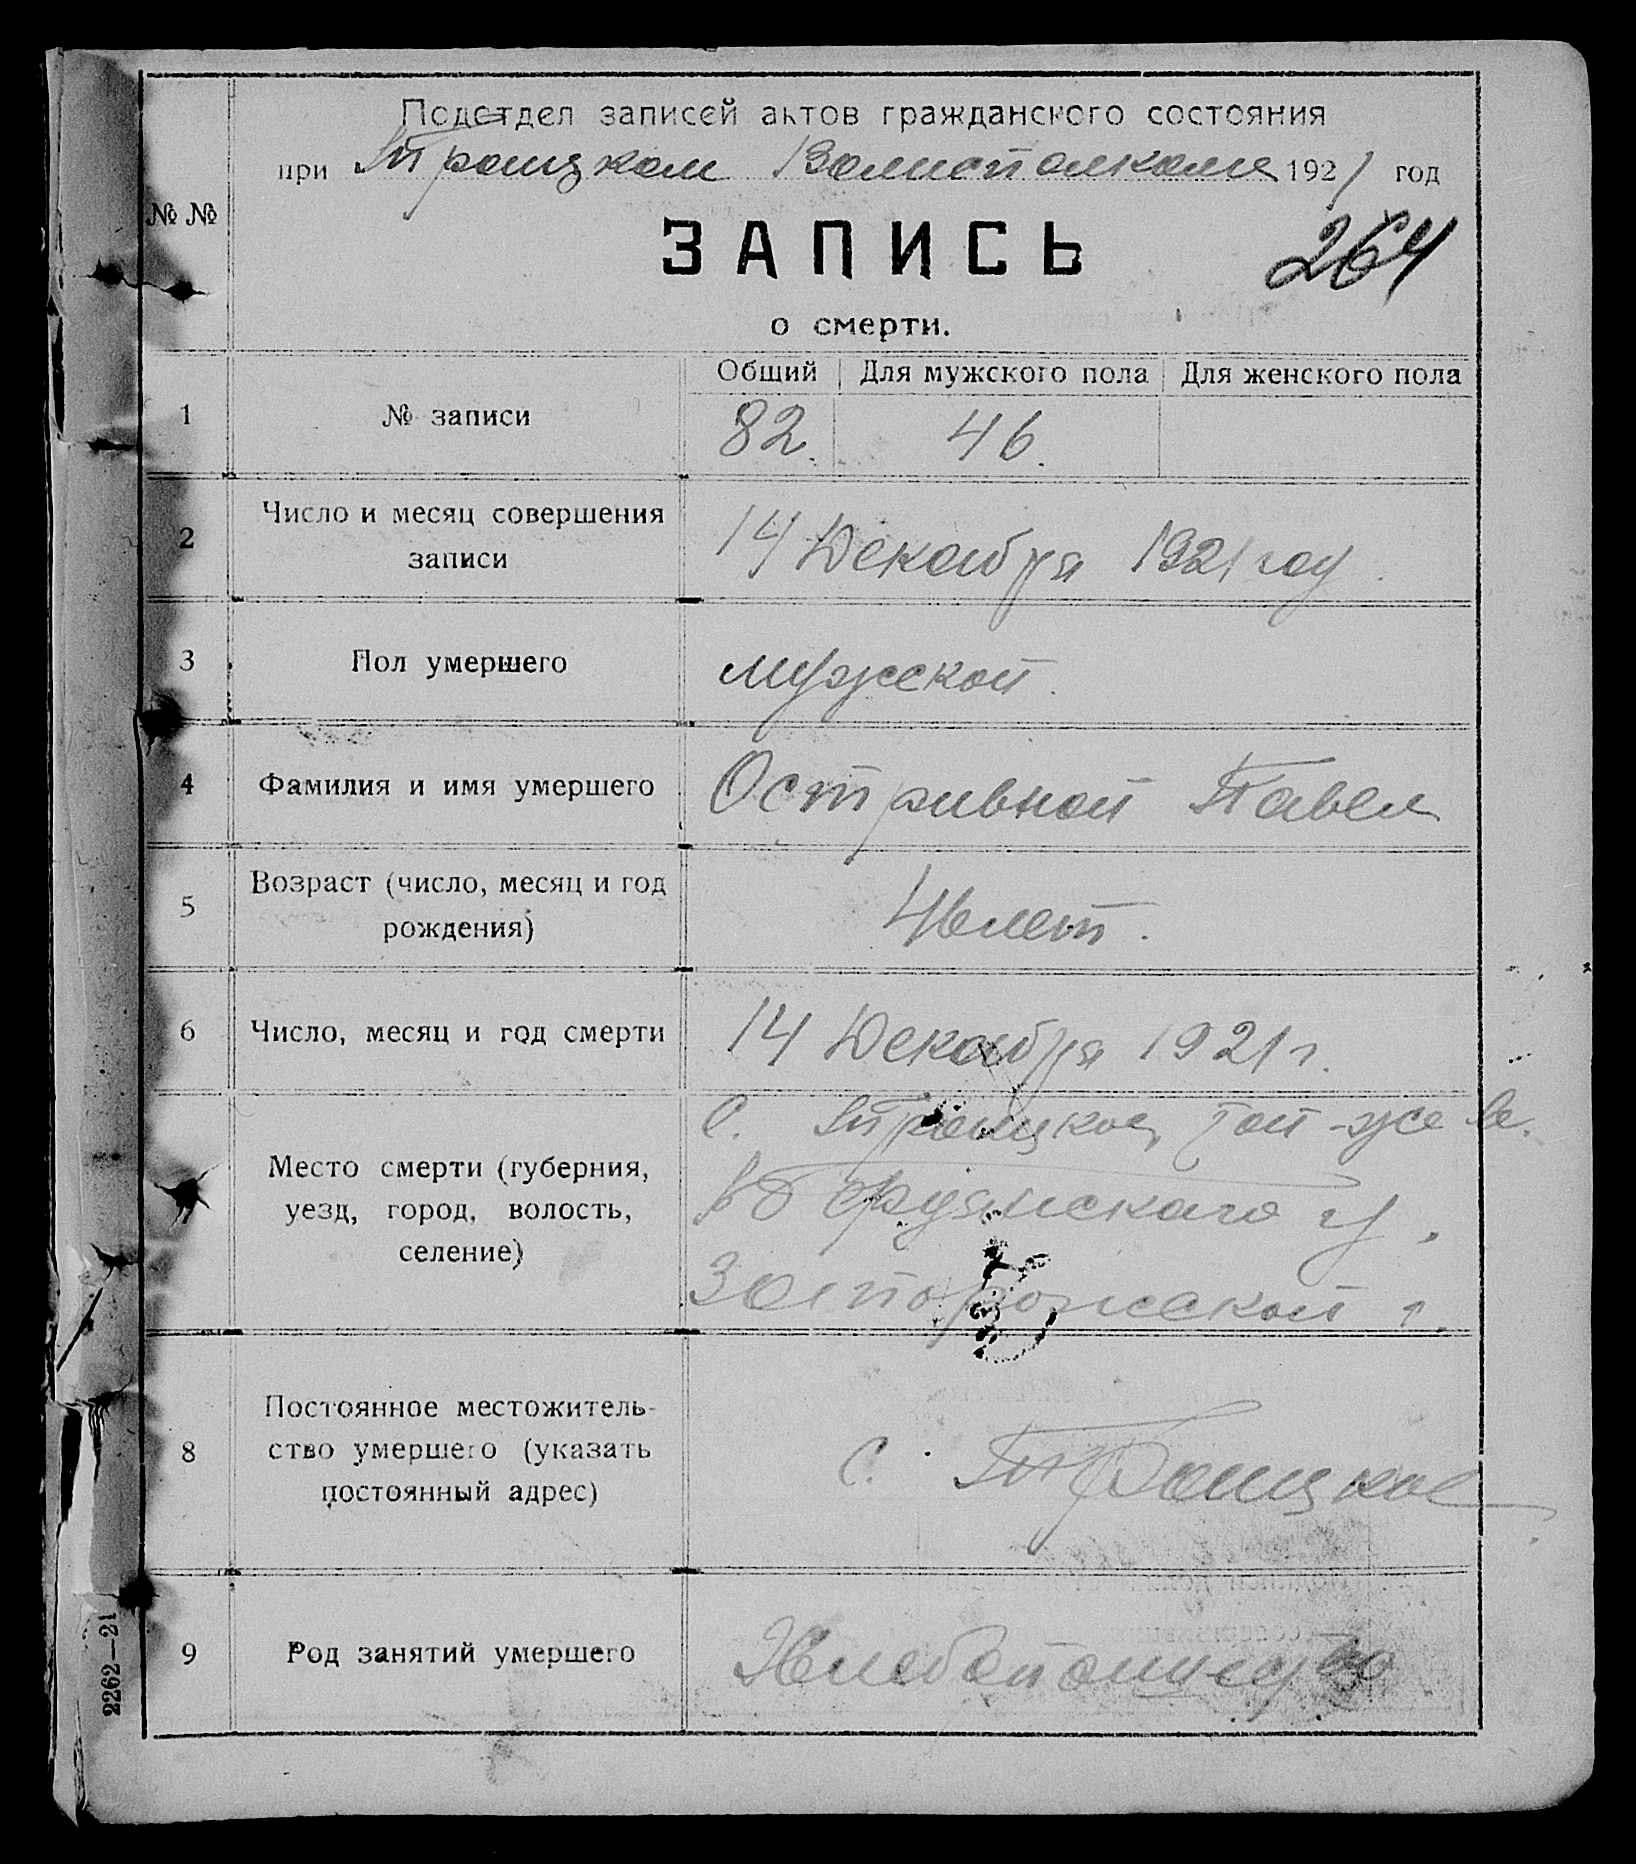 Подотдел записей актов гражданского состояния
при Троицком Волисполкоме 1921 год
№ №
ЗАПИСЬ
264
о смерти.
Общий Для мужского пола Для женского пола
1 № записи 82. 46.
2 Число и месяц совершения
записи
14 Декабря 1921 году.
3 Пол умершего мужской.
4 Фамилия и имя умершего Остривной Павел
5 Возраст (число, месяц и год
рождения)
46 лет.
6 Число, месяц и год смерти 14 Декабря 1921 г.
Место смерти (губерния,
уезд, город, волость,
селение)
С. Троицкое, той-же в.
Бердянского у.
Запорожской г.
8 Постоянное местожитель-
ство умершего (указать
постоянный адрес)
С. Троицкое
9 Род занятий умершего
2262—21